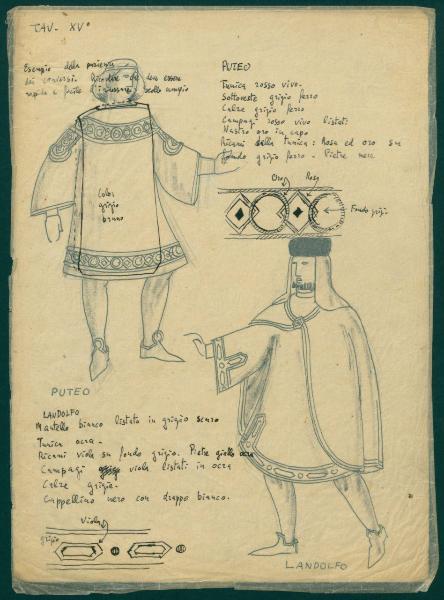 TAV- XV°
Esempio della pazienza
dei conversi. Ricordare che deve essere
rapida e facile collo ampio
PUTEO
Tunica rosso vivo-
Sottoveste grigio ferro
Calze grigio ferro
Campagi rosso vivo listati
Nastro oro in capo
Ricami della tunica: Rosa ed oro su
fondo grigio ferro - Pietre nere
Oro Rosa
Fondo grigio
Color
grigio
bruno
PUTEO
LANDOLFO
Mantello bianco listato in grigio scuro
Tunica ocra-
Ricami viola su fondo grigio. Pietre giallo ocra
Campagi viola listati in ocra
Calze grigie-
Cappellino nero con drappo bianco.
Viola
grigio
LANDOLFO